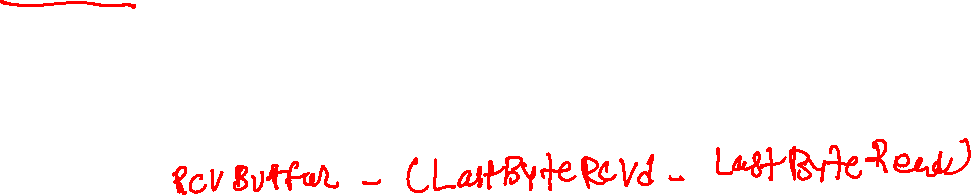 RCVBuffer - (LastByteRcvd - LastByteRead)